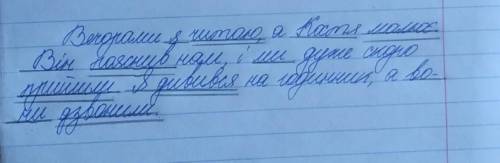 Вечорами я читаю, а Костя малює.
Він позвонив нам, і ми дуже скоро
прийшли Я дивився на годинник, а во-
ни дзвонили.